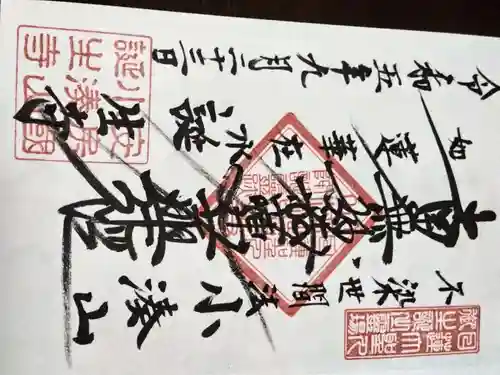 不染世間法
小湊山
南無妙法蓮華経
如蓮華在水
誕生寺
令和五年九月二十三日
安房國
小湊山
誕生寺